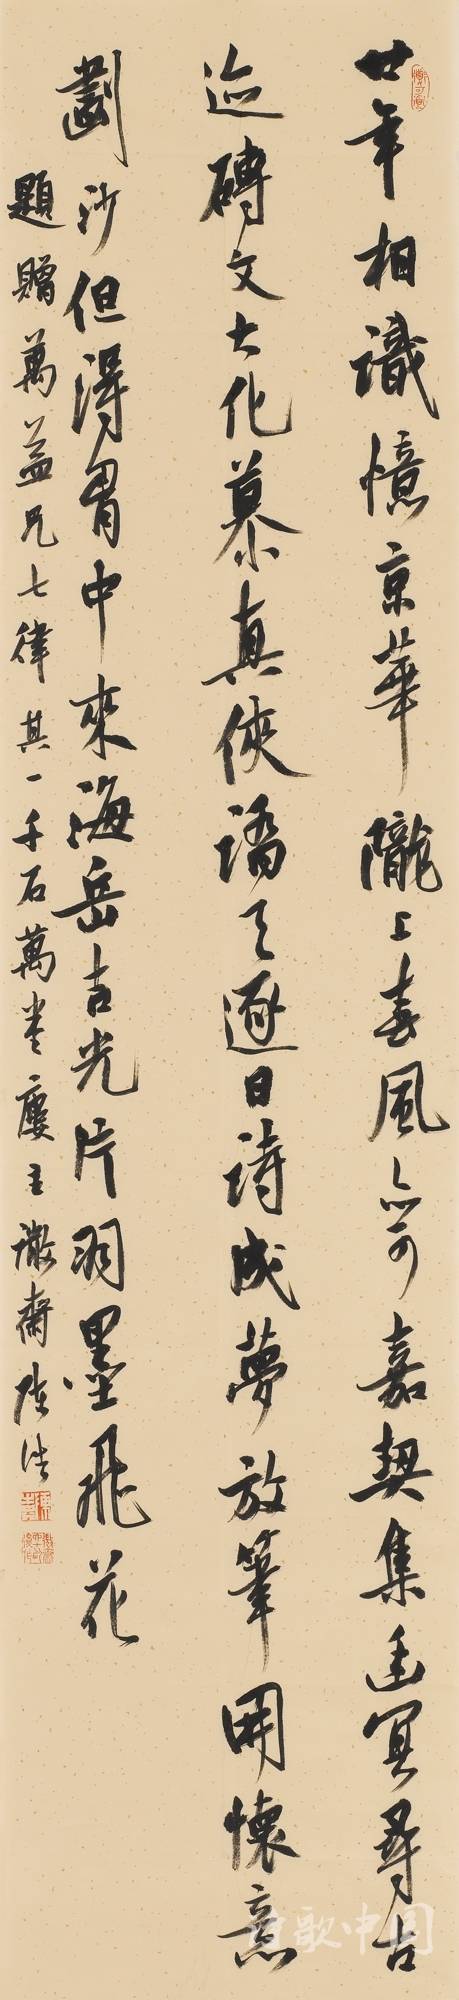 廿年相識憶京華隴上春風亦可嘉契集幽冥尋古
迹磚文大化慕真俠天逐日詩成夢放筆開懷意
劃沙但得胸中來海岳吉光片羽墨飛花
題贈萬益兄七律其一千石萬卷廔主齋陳浩
詩歌中国